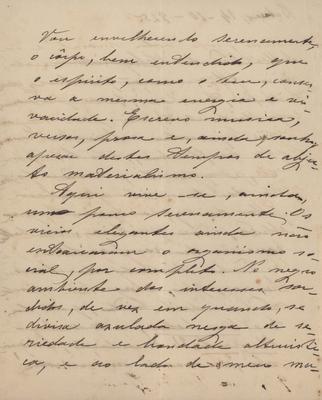 Vou envelhecendo serenamente,
o côrpo, bem entendido, que
o espirito, como o teu, conser
va a mesma energia e vi
vacidade. Escrevo musica,
versos, prosa e, ainda, sonho,
apesar destes tempos de abje
cto materialismo.
Aqui vive-se, ainda,
um pouco serenamente. Os
vicios elegantes ainda não
entraram o organismo so
cial, por completo. No negro
ambiente dos interesses sor
didos, de vez em quando, se
divisa azulada nesga de se
riedade e bondade altruisti
ca, e ao lado de meus